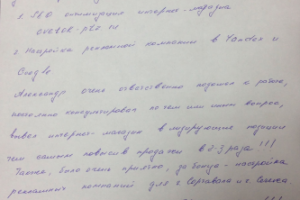 1. SEO оптимизация интернет-магазина
2. Настройка рекламной компании в Yandex и
Google
Александр очень ответственно подошел к работе,
консультировал по тем или иным вопросам,
вывел интернет-магазин в лидирующие позиции
тем самым повысив продажи в 2-3 раза!!!
Также, было очень приятно, до бонуса - настройка
рекламной компании для г. Сергиева и г.